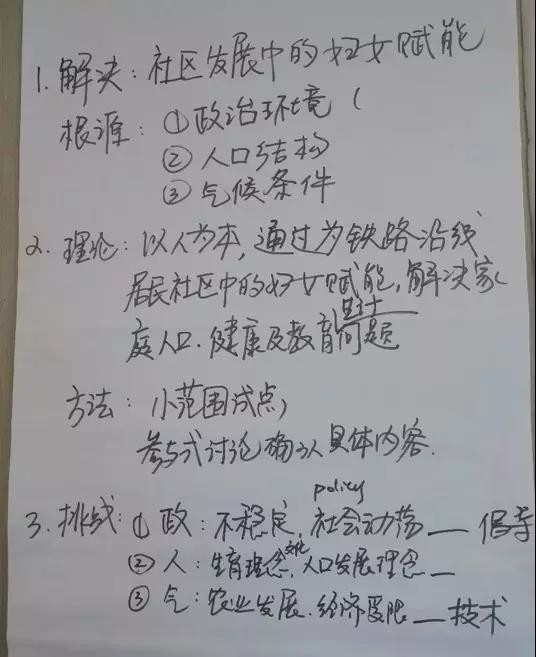 1. 解决：社区发展中的妇女赋能
根源：① 政治环境（
② 人口结构
③ 气候条件
2. 理论：以人为本，通过为铁路沿线
居民社区中的妇女赋能，解决家
庭人口、健康及教育生计问题
方法：小范围试点，
参与式讨论确认具体内容.
policy
3. 挑战：① 政：不稳定，社会动荡 — 倡导
② 人：生育理念、文化 人口发展理念 —
③ 气：农业发展、经济受限 — 技术